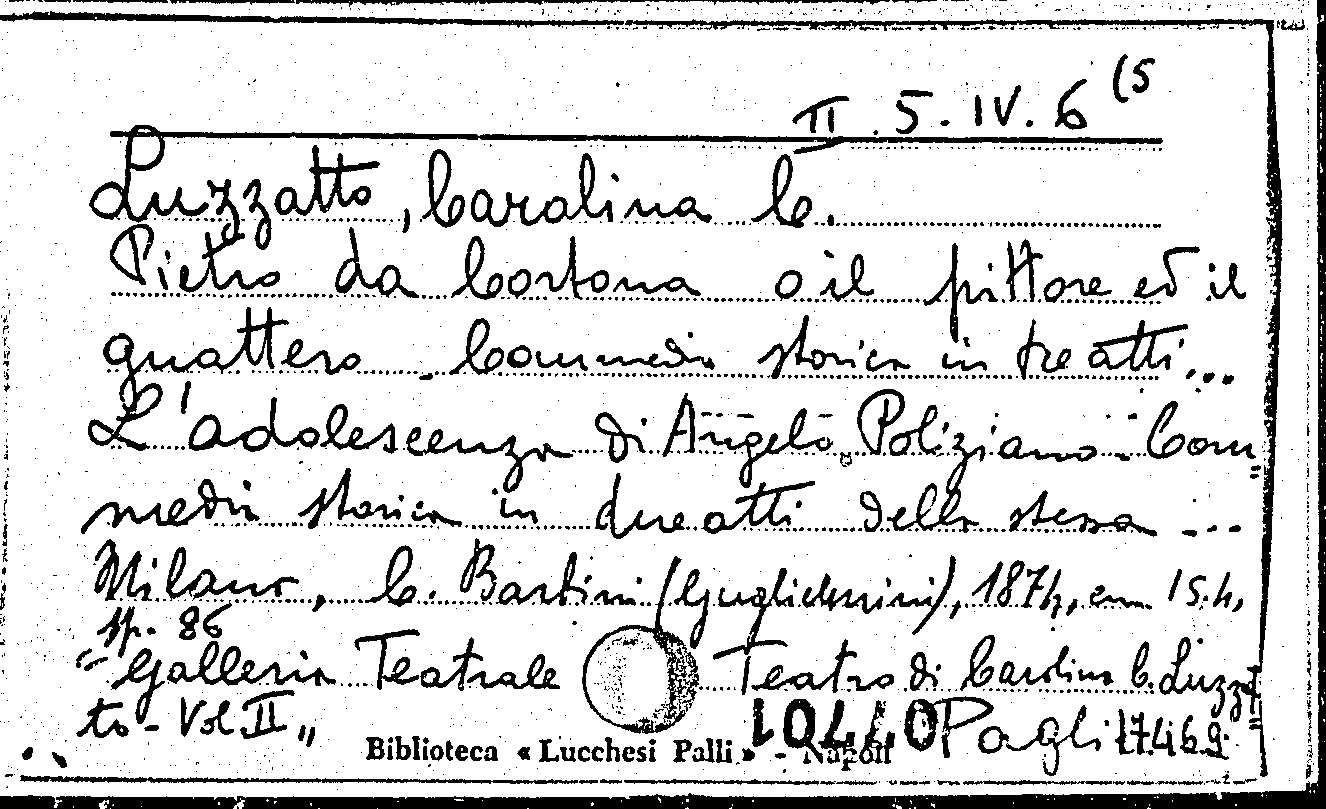 II. 5. IV. 6 (5
Luzzatto, Carolina C.
Pietro da Cortona o il pittore ed il
guattero - Commedia storica in tre atti...
L'adolescenza di Angelo Poliziano - Com=
media storica in due atti della stessa ...
Milano, C. Barbini (Guglielmini), 1874, cm 15.4,
pp. 86
"Galleria Teatrale Teatro di Carolina C. Luzzat=
to - Vol II"
Pagli 17469
Biblioteca « Lucchesi Palli » - Napoli